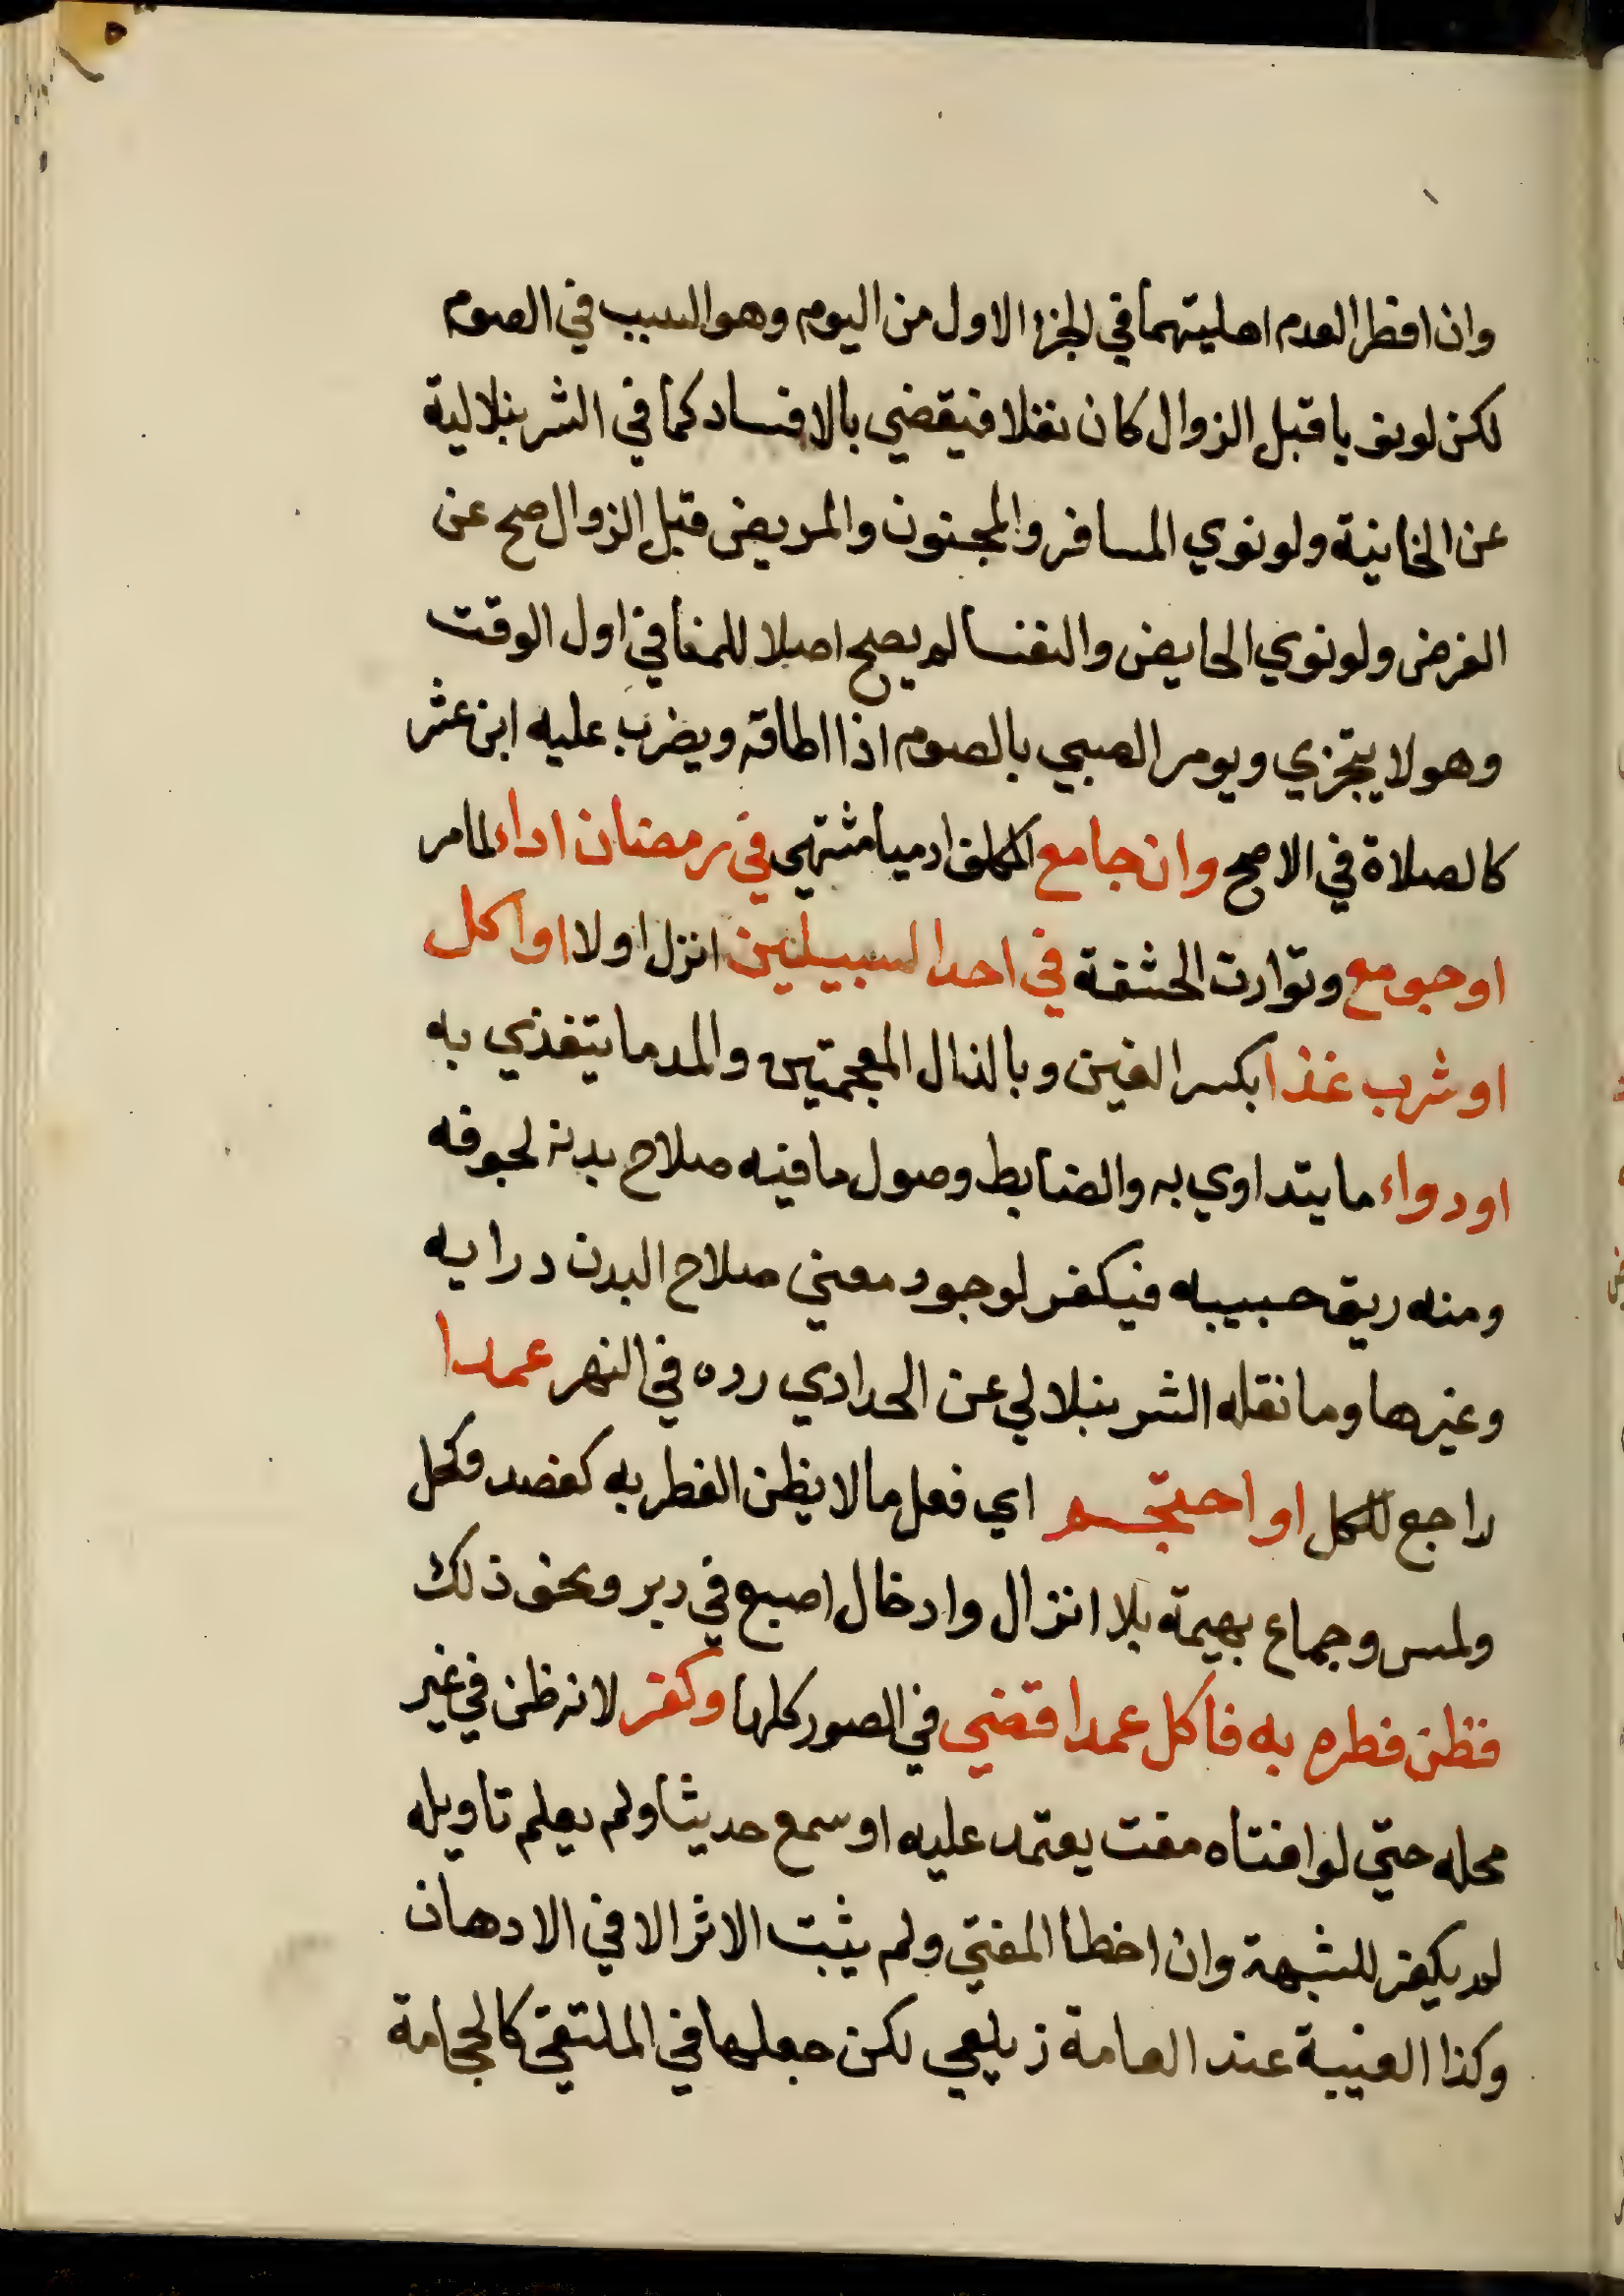 وان افطرا لعدم اهليتهما في الجزء الاول من اليوم وهو السبب في الصوم
لكن لو نويا قبل الزوال كان نفلا فيقضي بالافساد كما في الشرنبلالية
عن الخانية ولو نوي المسافر والمجنون والمريض قبل الزوال صح عن
الفرض ولو نوي الحايض والنفسا لم يصح اصلا للمنافي اول الوقت
وهو لا يتجزي ويومر الصبي بالصوم اذا اطاقه ويضرب عليه ابن عشر
كالصلاة في الاصح وان جامع المكلف ادميا مشتهي في رمضان اداء لمامر
او جومع وتوارت الحشفة في احد السبيلين انزل او لا او اكل
او شرب غذا بكسر الغين وبالذال المعجمتين والمد ما يتغذي به
او دواء ما يتداوي به والضابط وصول ما فيه صلاح بدنه لجوفه
ومنه ريق حبيبه فيكفر لوجود معني صلاح البدن درايه
وغيرها وما نقله الشرنبلالي عن الحدادي رده في النهر عمدا
راجع للكل او احتجم اي فعل ما لا يظن الفطر به كفصد وكحل
ولمس وجماع بهيمة بلا انزال وادخال اصبع في دبر ونحو ذلك
فظن فطره به فاكل عمدا قضي في الصور كلها وكفر لانه ظن في غير
محله حتي لو افتاه مفت يعتمد عليه او سمع حديثا ولم يعلم تاويله
لم يكفر للشبهة وان اخطا المفتي ولم يثبت الاثر الا في الادهان
وكذا الغيبة عند العامة زيلعي لكن جعلها في الملتقي كالحجامة